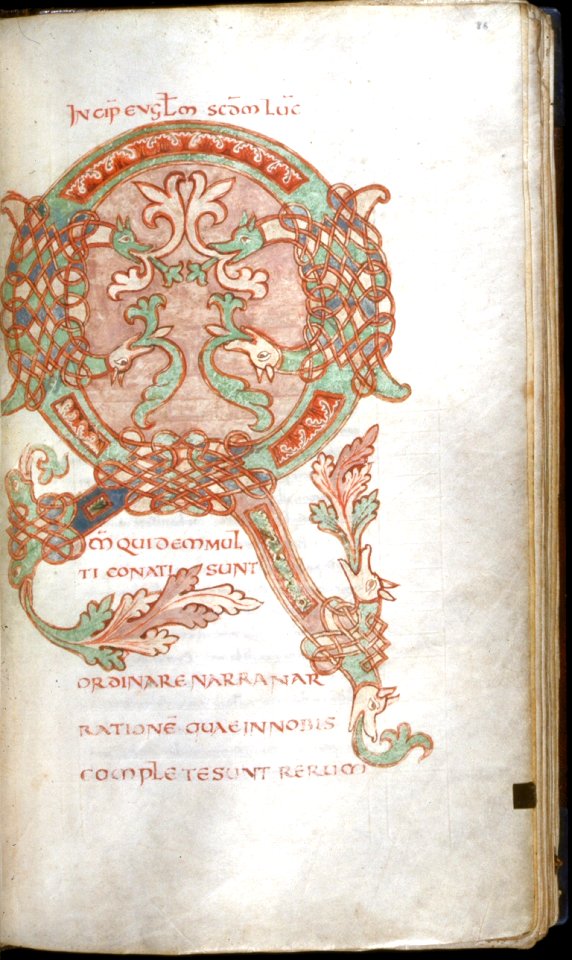 INCIP̄ EVGL̄M SCD̄M LUC̄
Qm̄ QUIDEM MUL
TI CONATI SUNT
ORDINARE NARRANAR
RATIONĒ QUAE IN NOBIS
COMPLETE SUNT RERUM